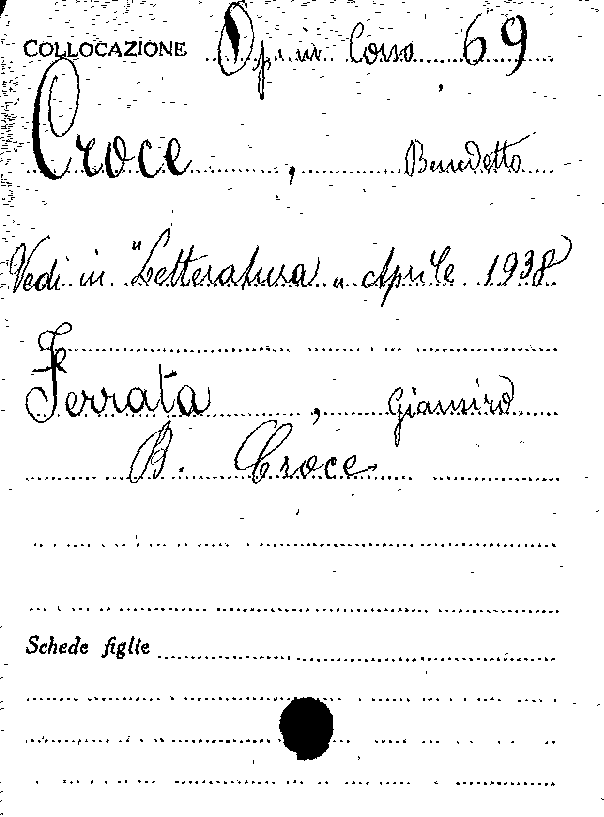 COLLOCAZIONE Op. in Corso, 69
Croce, Benedetto
Vedi in "Letteratura" Aprile 1938
Ferrata, Giansiro
B. Croce
Schede figlie